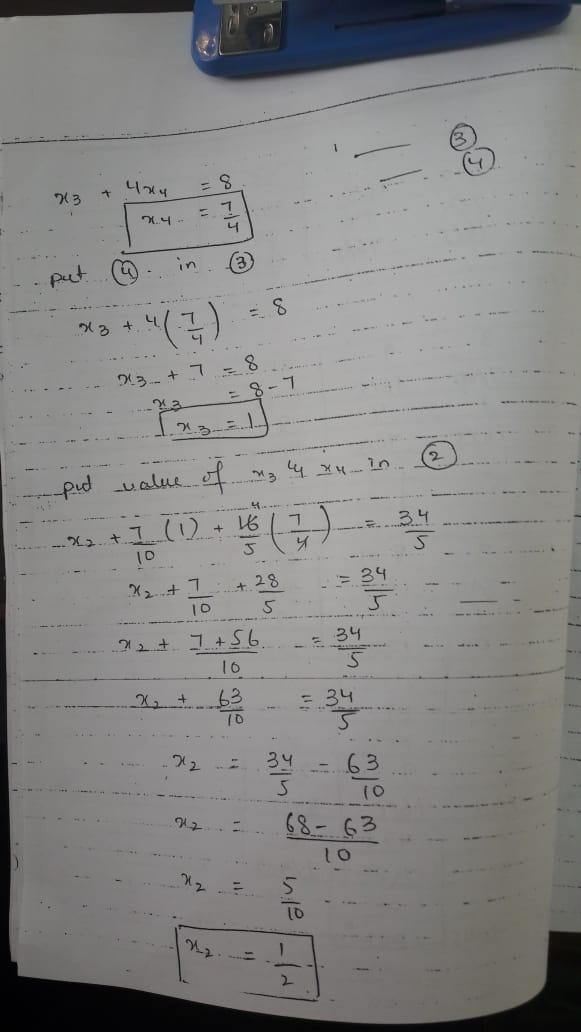 x₃ + 4x₄ = 8 — ③
x₄ = 7/4 — ④
put ④ in ③
x₃ + 4(7/4) = 8
x₃ + 7 = 8
x₃ = 8-7
x₃ = 1
put value of x₃ & x₄ in ②
x₂ + 7/10 (1) + 16/5 (7/4) = 34/5
x₂ + 7/10 + 28/5 = 34/5
x₂ + 7+56/10 = 34/5
x₂ + 63/10 = 34/5
x₂ = 34/5 - 63/10
x₂ = 68-63/10
x₂ = 5/10
x₂ = 1/2